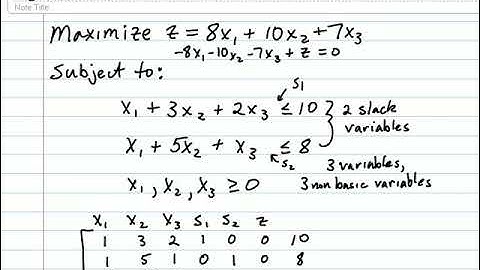 Note Title
Maximize z = 8x₁ + 10x₂ + 7x₃
-8x₁ - 10x₂ - 7x₃ + z = 0
Subject to:
s₁
x₁ + 3x₂ + 2x₃ ≤ 10 } 2 slack variables
x₁ + 5x₂ + x₃ ≤ 8
s₂
3 variables,
x₁, x₂, x₃ ≥ 0 3 non basic variables
x₁ x₂ x₃ s₁ s₂ z
1 3 2 1 0 0 10
1 5 1 0 1 0 8